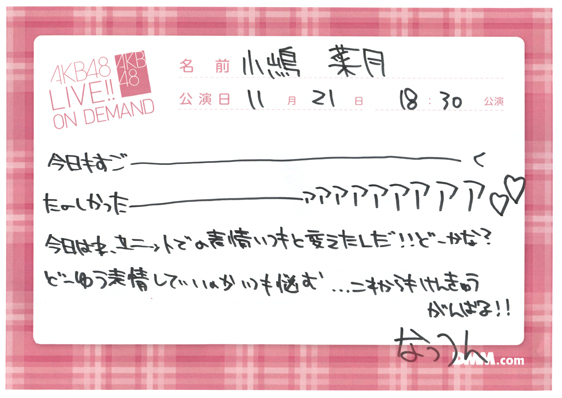 AKB48
LIVE!!
ON DEMAND
AKB
48
名前 小嶋 菜月
公演日 11月 21日 18:30 公演
今日もすご――――く
たのしかった――――ァァァァアアアアア♡♡
今日はね、ユニットでの表情いつもと変えたんだ!!どーかな?
どーゆう表情していいのかいつも悩む…これからもけんきゅう
がんばる!!
なっつん
.com